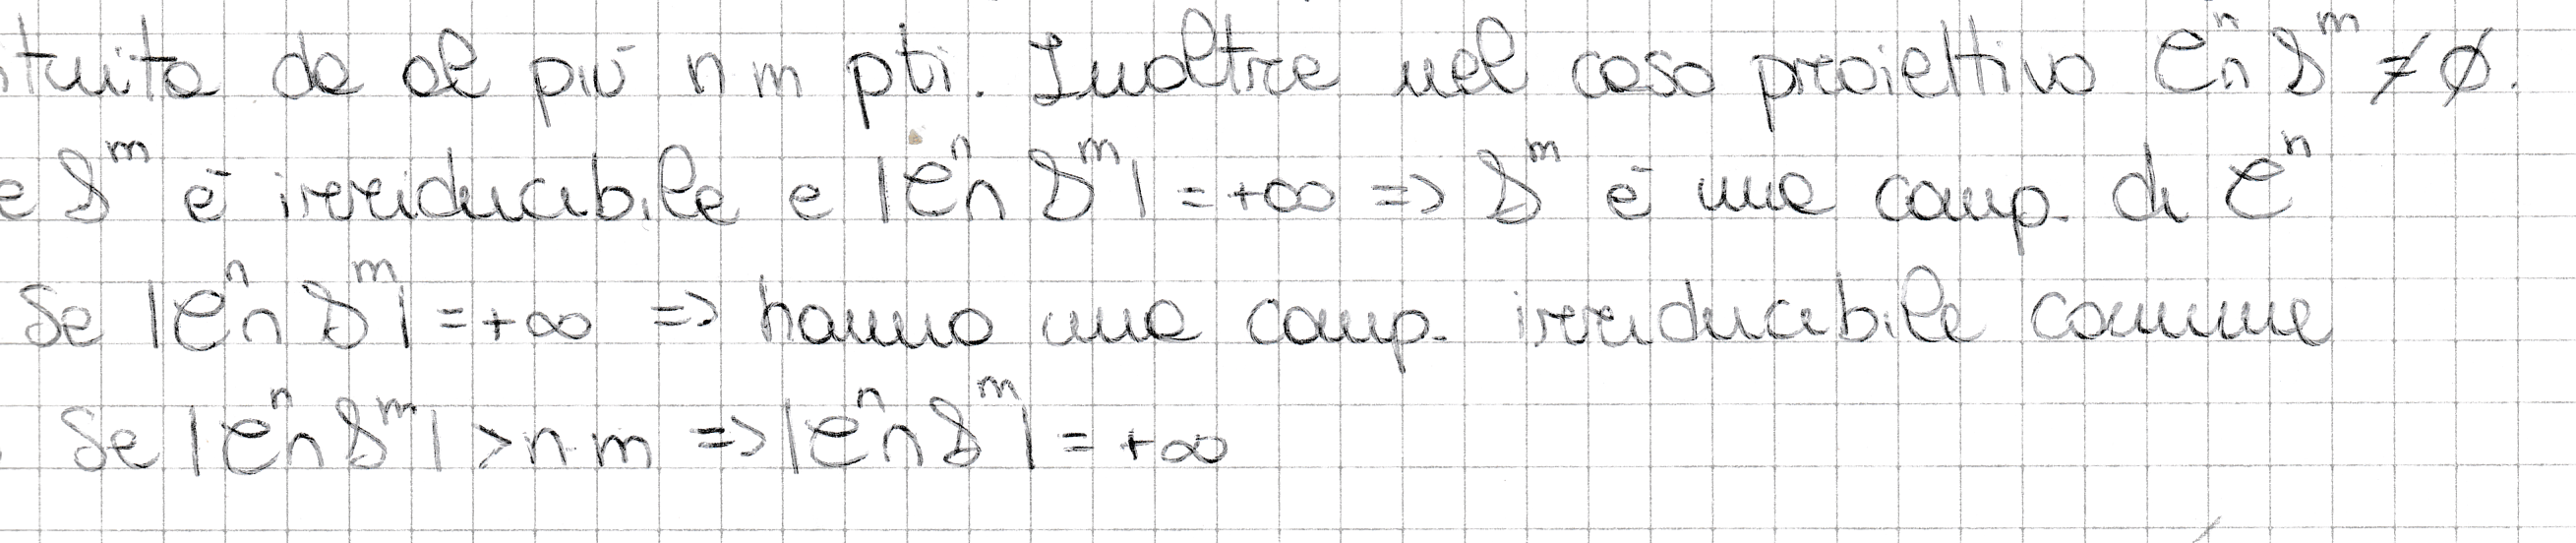 tuita da al più n m pti. Inoltre nel caso proiettivo 𝒞ⁿ∩𝒟ᵐ ≠ ∅.
e 𝒟ᵐ è irriducibile e |𝒞ⁿ∩𝒟ᵐ| = +∞ => 𝒟ᵐ è una comp. di 𝒞ⁿ
Se |𝒞ⁿ∩𝒟ᵐ| = +∞ => hanno una comp. irriducibile comune
Se |𝒞ⁿ∩𝒟ᵐ| > n·m => |𝒞ⁿ∩𝒟ᵐ| = +∞